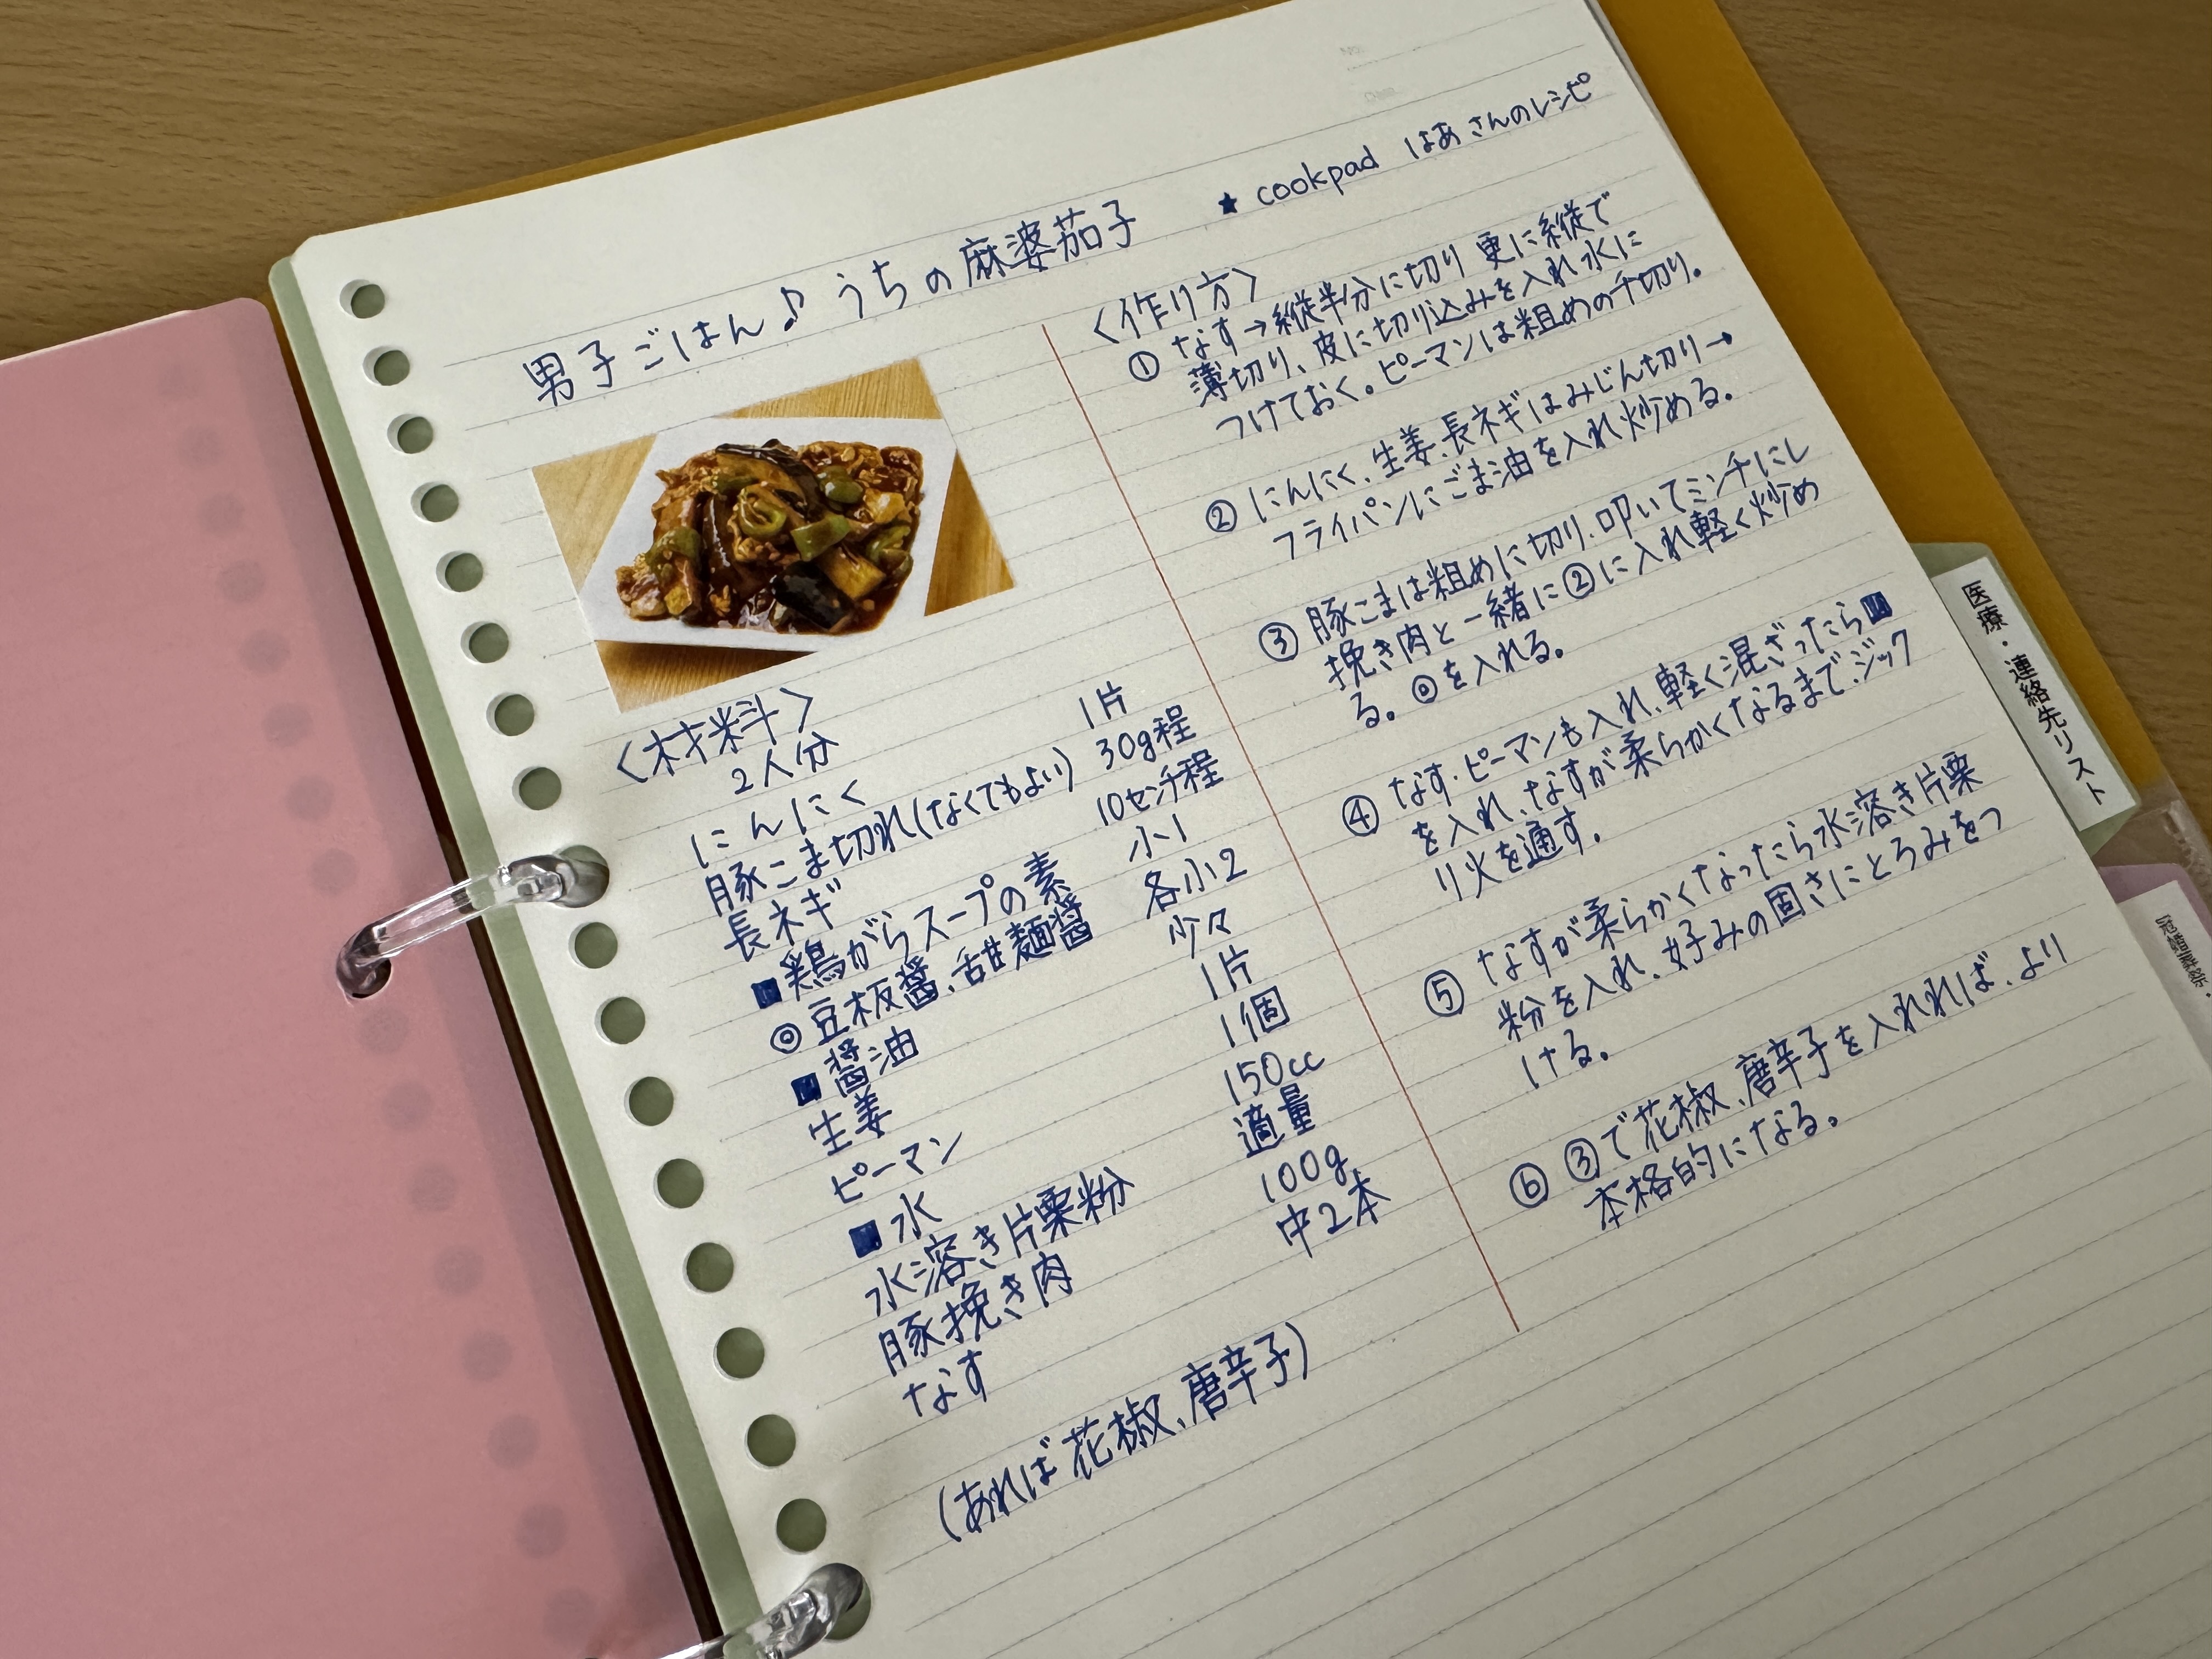 男子ごはん♪ うちの麻婆茄子
★ cookpad はあさんのレシピ
<材料>
2人分
にんにく 1片
豚こま切れ(なくてもよい) 30g程
長ネギ 10センチ程
■鶏がらスープの素 小1
◎豆板醤、甜麺醤 各小2
■醤油 少々
生姜 1片
ピーマン 1個
■水 150cc
水溶き片栗粉 適量
豚挽き肉 100g
なす 中2本
(あれば花椒、唐辛子)
<作り方>
① なす→縦半分に切り 更に縦で
薄切り、皮に切り込みを入れ水に
つけておく。ピーマンは粗めの千切り。
② にんにく、生姜、長ネギはみじん切り→
フライパンにごま油を入れ炒める。
③ 豚こまは粗めに切り、叩いてミンチにし
挽き肉と一緒に②に入れ軽く炒め
る。◎を入れる。
④ なす・ピーマンも入れ、軽く混ざったら■
を入れ、なすが柔らかくなるまで、ジック
リ火を通す。
⑤ なすが柔らかくなったら水溶き片栗
粉を入れ、好みの固さにとろみをつ
ける。
⑥ ③で花椒、唐辛子を入れれば、より
本格的になる。
医療・連絡先リスト
冠婚葬祭・